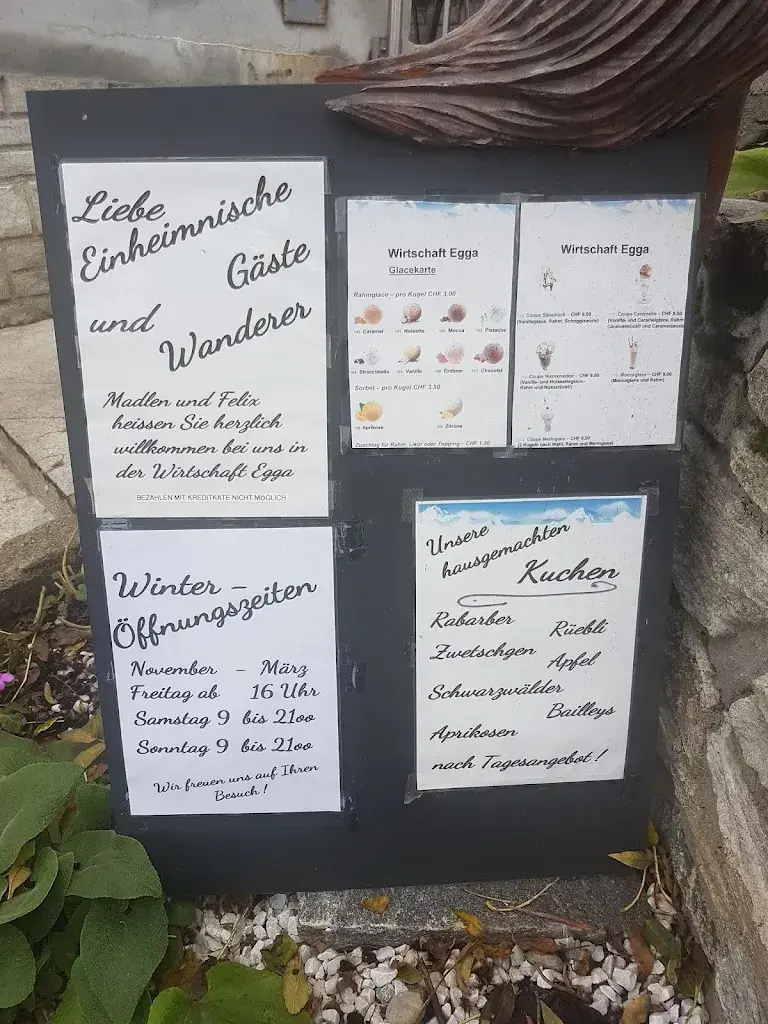 Liebe
Einheimnische
Gäste
und
Wanderer
Madlen und Felix
heissen Sie herzlich
willkommen bei uns in
der Wirtschaft Egga
BEZAHLEN MIT KREDITKATE NICHT MÖGLICH
Wirtschaft Egga
Glacekarte
Rahmglace – pro Kugel CHF 3.00
Caramel Noisette Mocca Pistache
Stracciatella Vanille Erdbeer Chocolat
Sorbet – pro Kugel CHF 3.50
Aprikose Zitrone
Zuschlag für Rahm, Likör oder Topping – CHF 1.50
Wirtschaft Egga
Coupe Dänemark – CHF 9.50
(Vanilleglace, Rahm, Schoggisauce)
Coupe Caramello – CHF 9.50
(Vanille- und Caramelglace, Rahm
Caramelnüssli und Caramelsauce
Coupe Nussknacker – CHF 9.50
(Vanille- und Noisetteglace,
Rahm und Nussnüssli)
Moccaglace – CHF 9.00
(Moccaglace und Rahm)
Coupe Meringues – CHF 8.50
(2 Kugeln nach Wahl, Rahm und Meringues)
Winter –
Öffnungszeiten
November – März
Freitag ab 16 Uhr
Samstag 9 bis 21oo
Sonntag 9 bis 21oo
Wir freuen uns auf Ihren
Besuch !
Unsere
hausgemachten
Kuchen
Rabarber
Rüebli
Zwetschgen
Apfel
Schwarzwälder
Bailleys
Aprikosen
nach Tagesangebot !